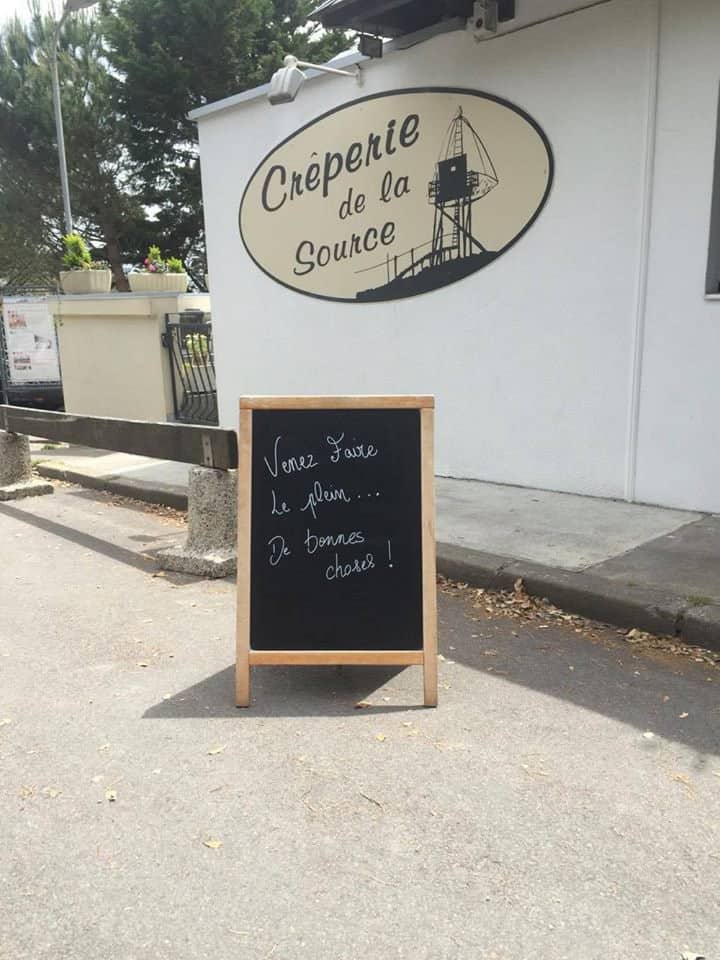 Crêperie
de la
Source
Venez Faire
Le plein...
De bonnes
choses !